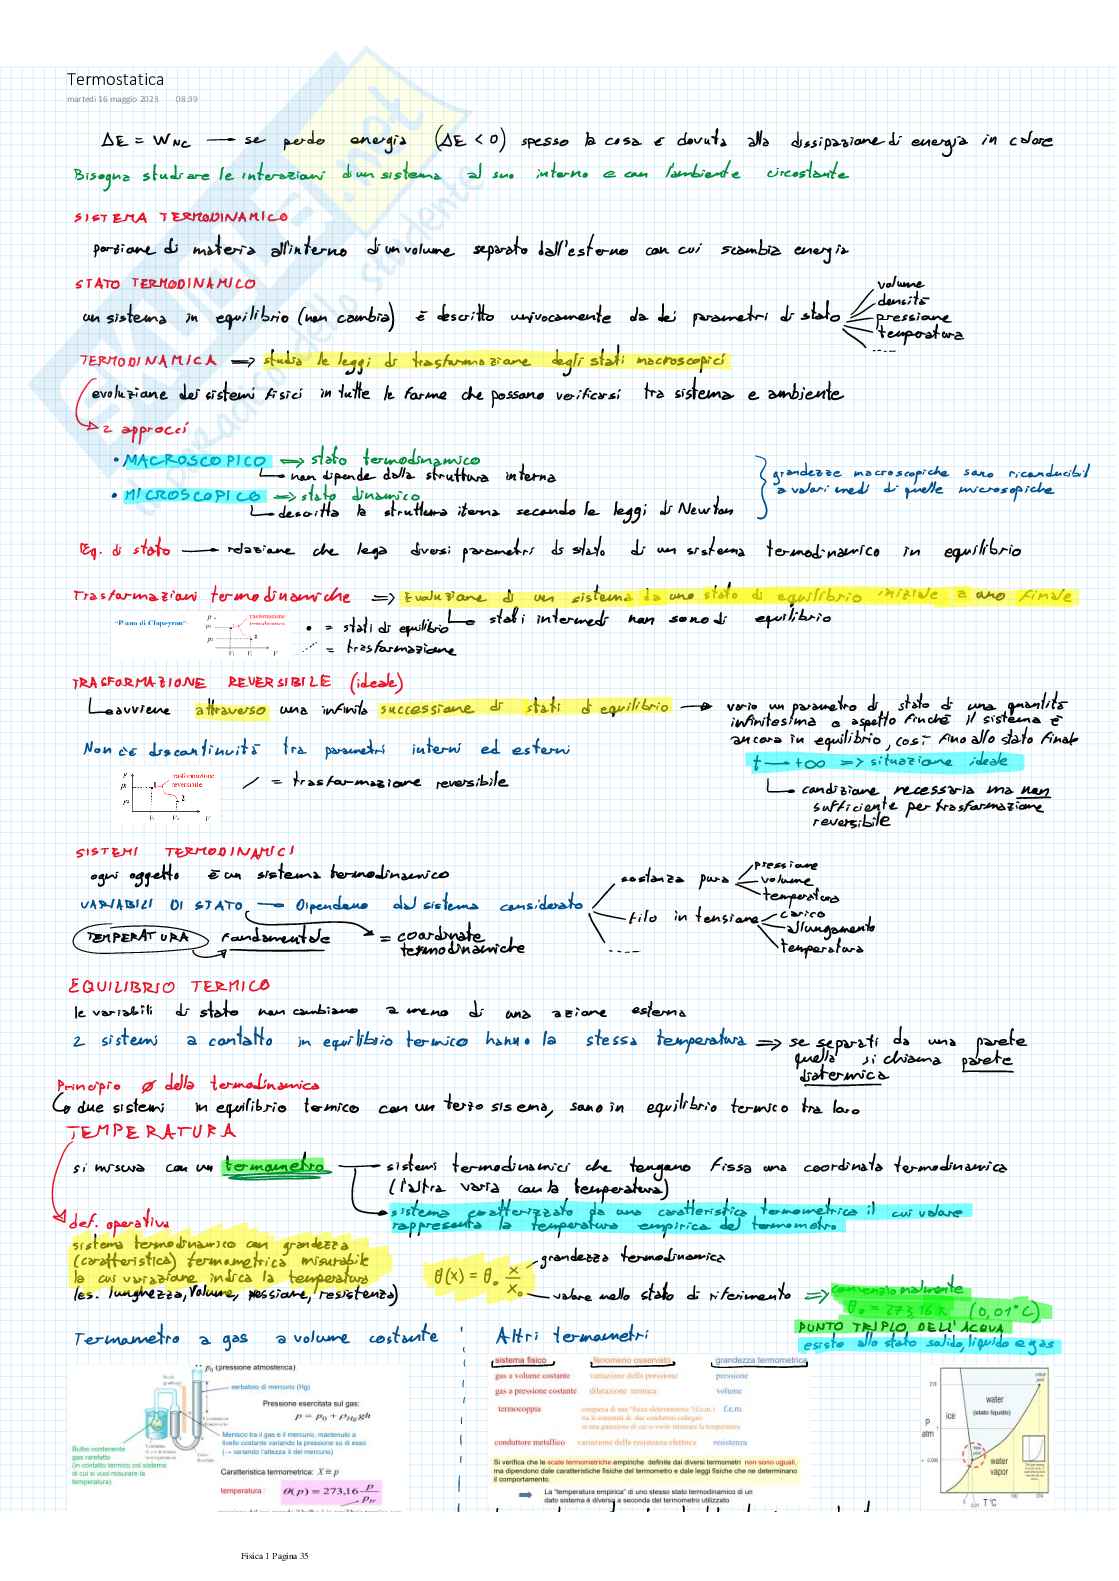 Termostatica
martedì 16 maggio 2023 08:39
ΔE = W_NC → se perdo energia (ΔE < 0) spesso la cosa è dovuta alla dissipazione di energia in calore
Bisogna studiare le interazioni di un sistema al suo interno e con l'ambiente circostante
SISTEMA TERMODINAMICO
porzione di materia all'interno di un volume separato dall'esterno con cui scambia energia
STATO TERMODINAMICO
un sistema in equilibrio (non cambia) è descritto univocamente da dei parametri di stato
volume
densità
pressione
temperatura
TERMODINAMICA => studia le leggi di trasformazione degli stati macroscopici
evoluzione dei sistemi fisici in tutte le forme che possono verificarsi tra sistema e ambiente
2 approcci
• MACROSCOPICO => stato termodinamico
non dipende dalla struttura interna
• MICROSCOPICO => stato dinamico
descritta la struttura iterna secondo le leggi di Newton
grandezze macroscopiche sono riconducibil
a valori medi di quelle microsopiche
Eq. di stato → relazione che lega diversi parametri di stato di un sistema termodinamico in equilibrio
Trasformazioni termodinamiche => Evoluzione di un sistema da uno stato di equilibrio iniziale a uno finale
stati intermedi non sono di equilibrio
"Piano di Clapeyron"
trasformazione
termodinamica
• = stati di equilibrio
= trasformazione
TRASFORMAZIONE REVERSIBILE (ideale)
avviene attraverso una infinita successione di stati di equilibrio → vario un parametro di stato di una quantità
infinitesima e aspetto finché il sistema è
ancora in equilibrio, così fino allo stato finale
Non c'è discontinuità tra parametri interni ed esterni
t → +∞ => situazione ideale
trasformazione
reversibile
/ = trasformazione reversibile
condizione necessaria ma non
sufficiente per trasformazione
reversibile
SISTEMI TERMODINAMICI
ogni oggetto è un sistema termodinamico
VARIABILI DI STATO → Dipendono dal sistema considerato
sostanza pura
pressione
volume
temperatura
filo in tensione
carico
allungamento
temperatura
TEMPERATURA fondamentale
= coordinate
termodinamiche
EQUILIBRIO TERMICO
le variabili di stato non cambiano a meno di una azione esterna
2 sistemi a contatto in equilibrio termico hanno la stessa temperatura => se separati da una parete
quella si chiama parete
diatermica
Principio ∅ della termodinamica
due sistemi in equilibrio termico con un terzo sisema, sono in equilibrio termico tra loro
TEMPERATURA
si misura con un termometro
sistemi termodinamici che tengono fissa una coordinata termodinamica
(l'altra varia con la temperatura)
sistema caratterizzato da una caratteristica termometrica il cui valore
rappresenta la temperatura empirica del termometro
def. operativa
sistema termodinamico con grandezza
(caratteristica) termometrica misurabile
la cui variazione indica la temperatura
(es. lunghezza, Volume, pressione, resistenza)
θ(x) = θ₀ x/x₀
grandezza termodinamica
valore nello stato di riferimento => convenzionalmente
θ₀ = 273,16 K (0,01°C)
PUNTO TRIPLO DELL'ACQUA
esiste allo stato solido, liquido e gas
Termometro a gas a volume costante
Altri termometri
p₀ (pressione atmosferica)
serbatoio di mercurio (Hg)
Pressione esercitata sul gas:
p = p₀ + ρ_Hg gh
Menisco tra il gas e il mercurio, mantenuto a
livello costante variando la pressione su di esso
(→ variando l'altezza h del mercurio)
Bulbo contenente
gas rarefatto
(in contatto termico col sistema
di cui si vuol misurare la
temperatura)
Caratteristica termometrica: X ≡ p
temperatura : θ(p) = 273,16 p/p_tr
sistema fisico fenomeno osservato grandezza termometrica
gas a volume costante variazione della pressione pressione
gas a pressione costante dilatazione termica volume
termocoppia f.e.m.
conduttore metallico variazione della resistenza elettrica resistenza
Si verifica che le scale termometriche empiriche definite dai diversi termometri non sono uguali,
ma dipendono dalle caratteristiche fisiche del termometro e dalle leggi fisiche che ne determinano
il comportamento.
La "temperatura empirica" di uno stesso stato termodinamico di un
dato sistema è diversa a seconda del termometro utilizzato
ice
water
(stato liquido)
P
atm
water
vapor
T °C
Fisica 1 Pagina 35